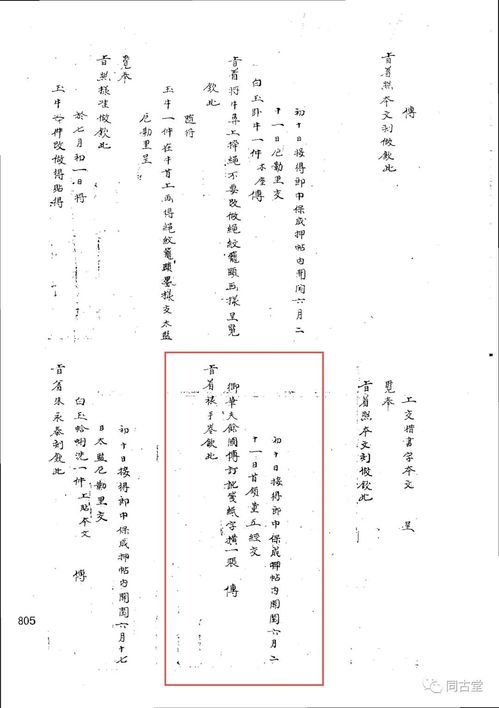 傳
旨着照本文刻做欽此
初十日接得郎中保成押帖内開閏六月二
十一日厄勒里交
白玉卧牛一件 木座 傳
旨着將牛鼻上擰繩不要改做繩紋籠頭画樣呈覽
欽此
隨將
玉牛一件在牛首上画得繩紋籠頭墨樣交太監
厄勒里呈
覽奉
旨照樣准做欽此
於七月初一日將
玉牛一件改做得貼得
工交楷書字本文 呈
覽奉
旨着照本文刻做欽此
初十日接得郎中保成押帖内開閏六月二
十一日首領董五經交
御筆天餘閣傳訂記箋紙字橫一張 傳
旨着裱手卷欽此
初十日接得郎中保成押帖内開閏六月十七
日太監厄勒里交
白玉蛤蜊洗一件 上貼本文 傳
旨着朱永泰刻欽此
805
同古堂